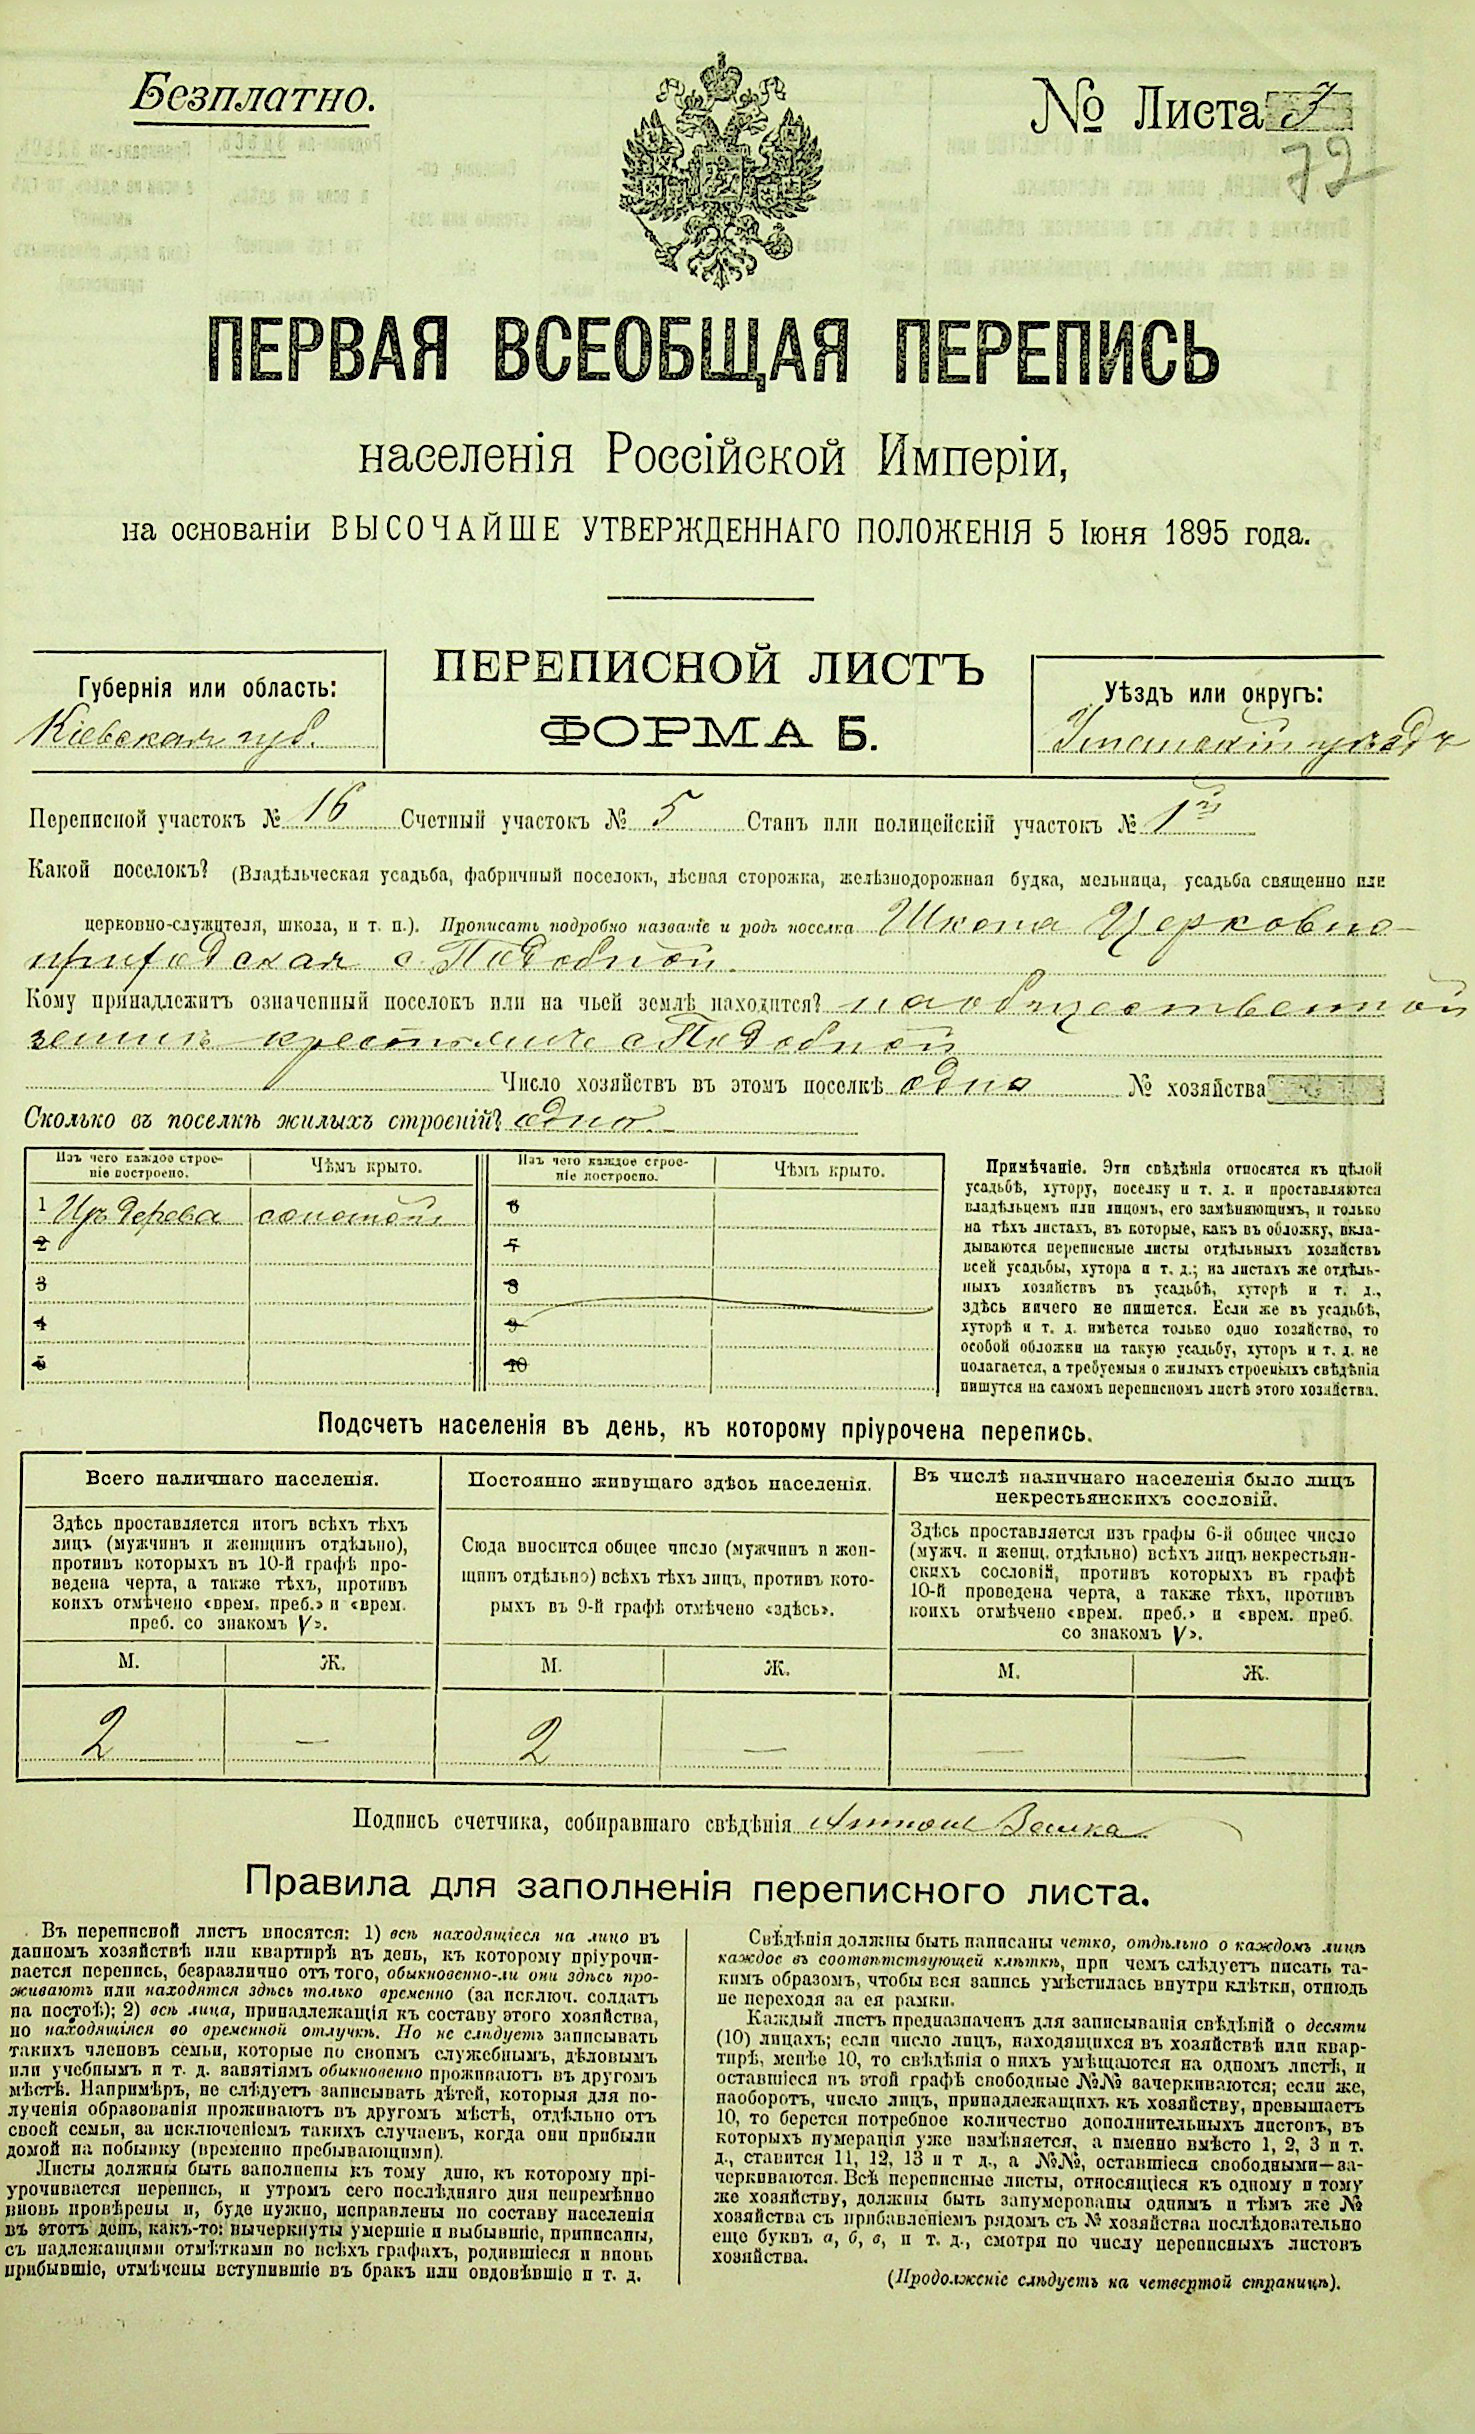 Безплатно.
№ Листа 3
72
ПЕРВАЯ ВСЕОБЩАЯ ПЕРЕПИСЬ
населенія Россійской Имперіи,
на основаніи ВЫСОЧАЙШЕ УТВЕРЖДЕННАГО ПОЛОЖЕНІЯ 5 Іюня 1895 года.
ПЕРЕПИСНОЙ ЛИСТЪ
ФОРМА Б.
Губернія или область:
Кіевская губ.
Уѣздъ или округъ:
Уманскій уѣздъ
Переписной участокъ № 16 Счетный участокъ № 5 Станъ или полицейскій участокъ № 1й
Какой поселокъ? (Владѣльческая усадьба, фабричный поселокъ, лѣсная сторожка, желѣзнодорожная будка, мельница, усадьба священно или
церковно-служителя, школа, и т. п.). Прописать подробно названіе и родъ поселка Школа Церковно-
приходская с. Подобной
Кому принадлежитъ означенный поселокъ или на чьей землѣ находится? на общественной
землѣ крестьянъ с Подобной
Число хозяйствъ въ этомъ поселкѣ одно № хозяйства
Сколько въ поселкѣ жилыхъ строеній? одно
Изъ чего каждое строе-
ніе построено.
Чѣмъ крыто.
Изъ чего каждое строе-
ніе построено.
Чѣмъ крыто.
1 Изъ дерева соломой 6
2 7
3 8
4 9
5 10
Примѣчаніе. Эти свѣдѣнія относятся къ цѣлой
усадьбѣ, хутору, поселку и т. д. и проставляются
владѣльцемъ или лицомъ, его замѣняющимъ, и только
на тѣхъ листахъ, въ которые, какъ въ обложку, вкла-
дываются переписные листы отдѣльныхъ хозяйствъ
всей усадьбы, хутора и т. д.; на листахъ же отдѣль-
ныхъ хозяйствъ въ усадьбѣ, хуторѣ и т. д.,
здѣсь ничего не пишется. Если же въ усадьбѣ,
хуторѣ и т. д. имѣется только одно хозяйство, то
особой обложки на такую усадьбу, хуторъ и т. д. не
полагается, а требуемыя о жилыхъ строеныхъ свѣдѣнія
пишутся на самомъ переписномъ листѣ этого хозяйства.
Подсчетъ населенія въ день, къ которому пріурочена перепись.
Всего наличнаго населенія.
Здѣсь проставляется итогъ всѣхъ тѣхъ
лицъ (мужчинъ и женщинъ отдѣльно),
противъ которыхъ въ 10-й графѣ про-
ведена черта, а также тѣхъ, противъ
коихъ отмѣчено «врем. преб.» и «врем.
преб. со знакомъ V».
М. Ж.
2 —
Постоянно живущаго здѣсь населенія.
Сюда вносится общее число (мужчинъ и жен-
щинъ отдѣльно) всѣхъ тѣхъ лицъ, противъ кото-
рыхъ въ 9-й графѣ отмѣчено «здѣсь».
М. Ж.
2 —
Въ числѣ наличнаго населенія было лицъ
некрестьянскихъ сословій.
Здѣсь проставляется изъ графы 6-й общее число
(мужч. и женщ. отдѣльно) всѣхъ лицъ некрестьян-
скихъ сословій, противъ которыхъ въ графѣ
10-й проведена черта, а также тѣхъ, противъ
коихъ отмѣчено «врем. преб.» и «врем. преб.
со знакомъ V».
М. Ж.
— —
Подпись счетчика, собиравшаго свѣдѣнія Антон
Правила для заполненія переписного листа.
Въ переписной листъ вносятся: 1) всѣ находящіеся на лицо въ
данномъ хозяйствѣ или квартирѣ въ день, къ которому пріурочи-
вается перепись, безразлично отъ того, обыкновенно-ли они здѣсь про-
живаютъ или находятся здѣсь только временно (за исключ. солдатъ
на постоѣ); 2) всѣ лица, принадлежащія къ составу этого хозяйства,
но находящіяся во временной отлучкѣ. Но не слѣдуетъ записывать
такихъ членовъ семьи, которые по своимъ служебнымъ, дѣловымъ
или учебнымъ и т. д. занятіямъ обыкновенно проживаютъ въ другомъ
мѣстѣ. Напримѣръ, не слѣдуетъ записывать дѣтей, которыя для по-
лученія образованія проживаютъ въ другомъ мѣстѣ, отдѣльно отъ
своей семьи, за исключеніемъ такихъ случаевъ, когда они прибыли
домой на побывку (временно пребывающими).
Листы должны быть заполнены къ тому дню, къ которому прі-
урочивается перепись, и утромъ сего послѣдняго дня непремѣнно
вновь провѣрены и, буде нужно, исправлены по составу населенія
въ этотъ день, какъ-то: вычеркнуты умершіе и выбывшіе, приписаны,
съ надлежащими отмѣтками во всѣхъ графахъ, родившіеся и вновь
прибывшіе, отмѣчены вступившіе въ бракъ или овдовѣвшіе и т. д.
Свѣдѣнія должны быть написаны четко, отдѣльно о каждомъ лицѣ
каждое въ соотвѣтствующей клѣткѣ, при чемъ слѣдуетъ писать та-
кимъ образомъ, чтобы вся запись умѣстилась внутри клѣтки, отнюдь
не переходя за ея рамки.
Каждый листъ предназначенъ для записыванія свѣдѣній о десяти
(10) лицахъ; если число лицъ, находящихся въ хозяйствѣ или квар-
тирѣ, менѣе 10, то свѣдѣнія о нихъ умѣщаются на одномъ листѣ, и
оставшіеся въ этой графѣ свободные №№ зачеркиваются; если же,
наоборотъ, число лицъ, принадлежащихъ къ хозяйству, превышаетъ
10, то берется потребное количество дополнительныхъ листовъ, въ
которыхъ нумерація уже измѣняется, а именно вмѣсто 1, 2, 3 и т.
д., ставится 11, 12, 13 и т д., а №№, оставшіеся свободными—за-
черкиваются. Всѣ переписные листы, относящіеся къ одному и тому
же хозяйству, должны быть занумерованы однимъ и тѣмъ же №
хозяйства съ прибавленіемъ рядомъ съ № хозяйства послѣдовательно
еще буквъ а, б, в, и т. д., смотря по числу переписныхъ листовъ
хозяйства.
(Продолженіе слѣдуетъ на четвертой страницѣ).